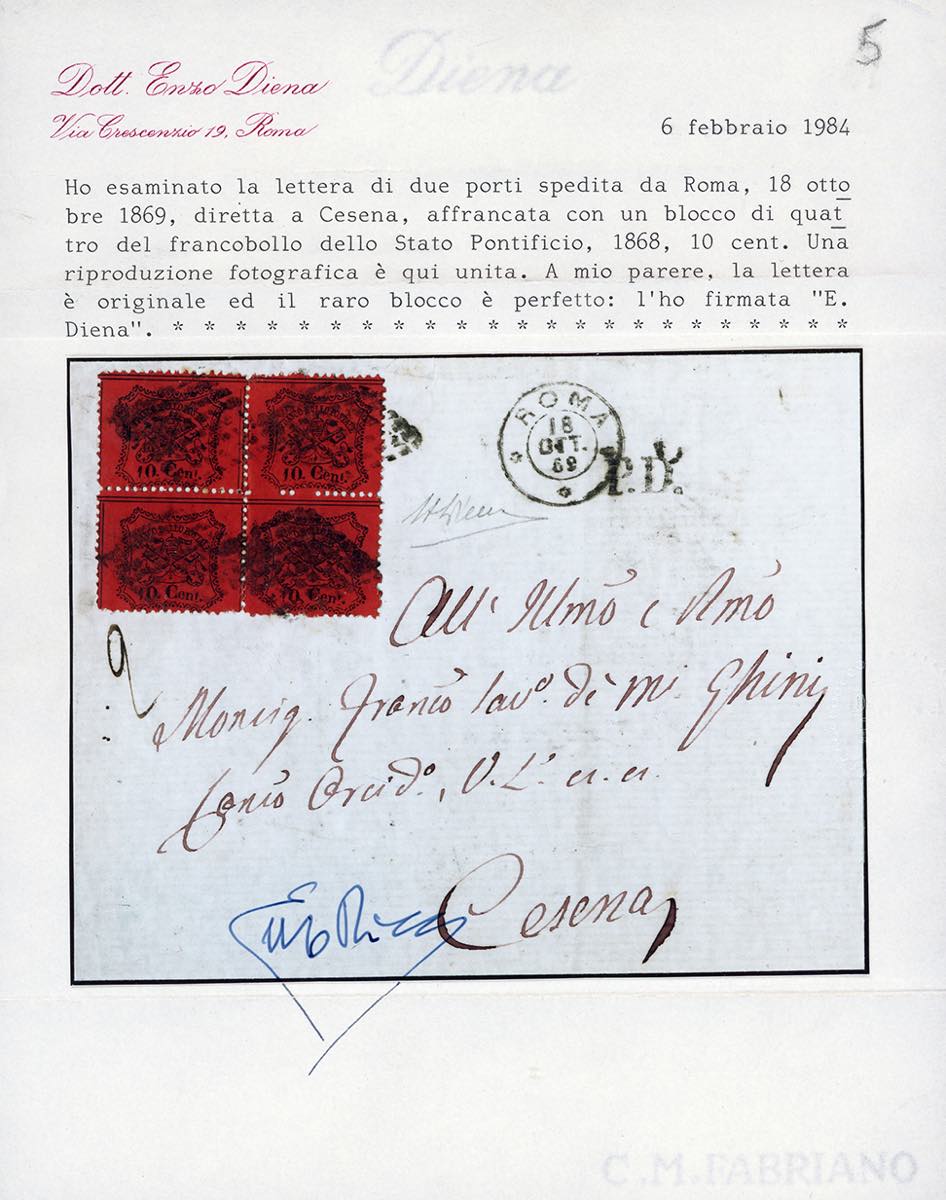 5
Diena
Dott. Enzo Diena
Via Crescenzio 19, Roma
6 febbraio 1984
Ho esaminato la lettera di due porti spedita da Roma, 18 otto
bre 1869, diretta a Cesena, affrancata con un blocco di quat
tro del francobollo dello Stato Pontificio, 1868, 10 cent. Una
riproduzione fotografica è qui unita. A mio parere, la lettera
è originale ed il raro blocco è perfetto: l'ho firmata "E.
Diena". * * * * * * * * * * * * * * * * * * * * * *
10 Cent. 10 Cent.
10 Cent. 10 Cent.
ROMA
18
OTT.
69
P.D.
All' Illmõ e Rmõ
Monsig. Franco Sav.º di Mi. Ghini
2
Cesena
C.M.FABRIANO